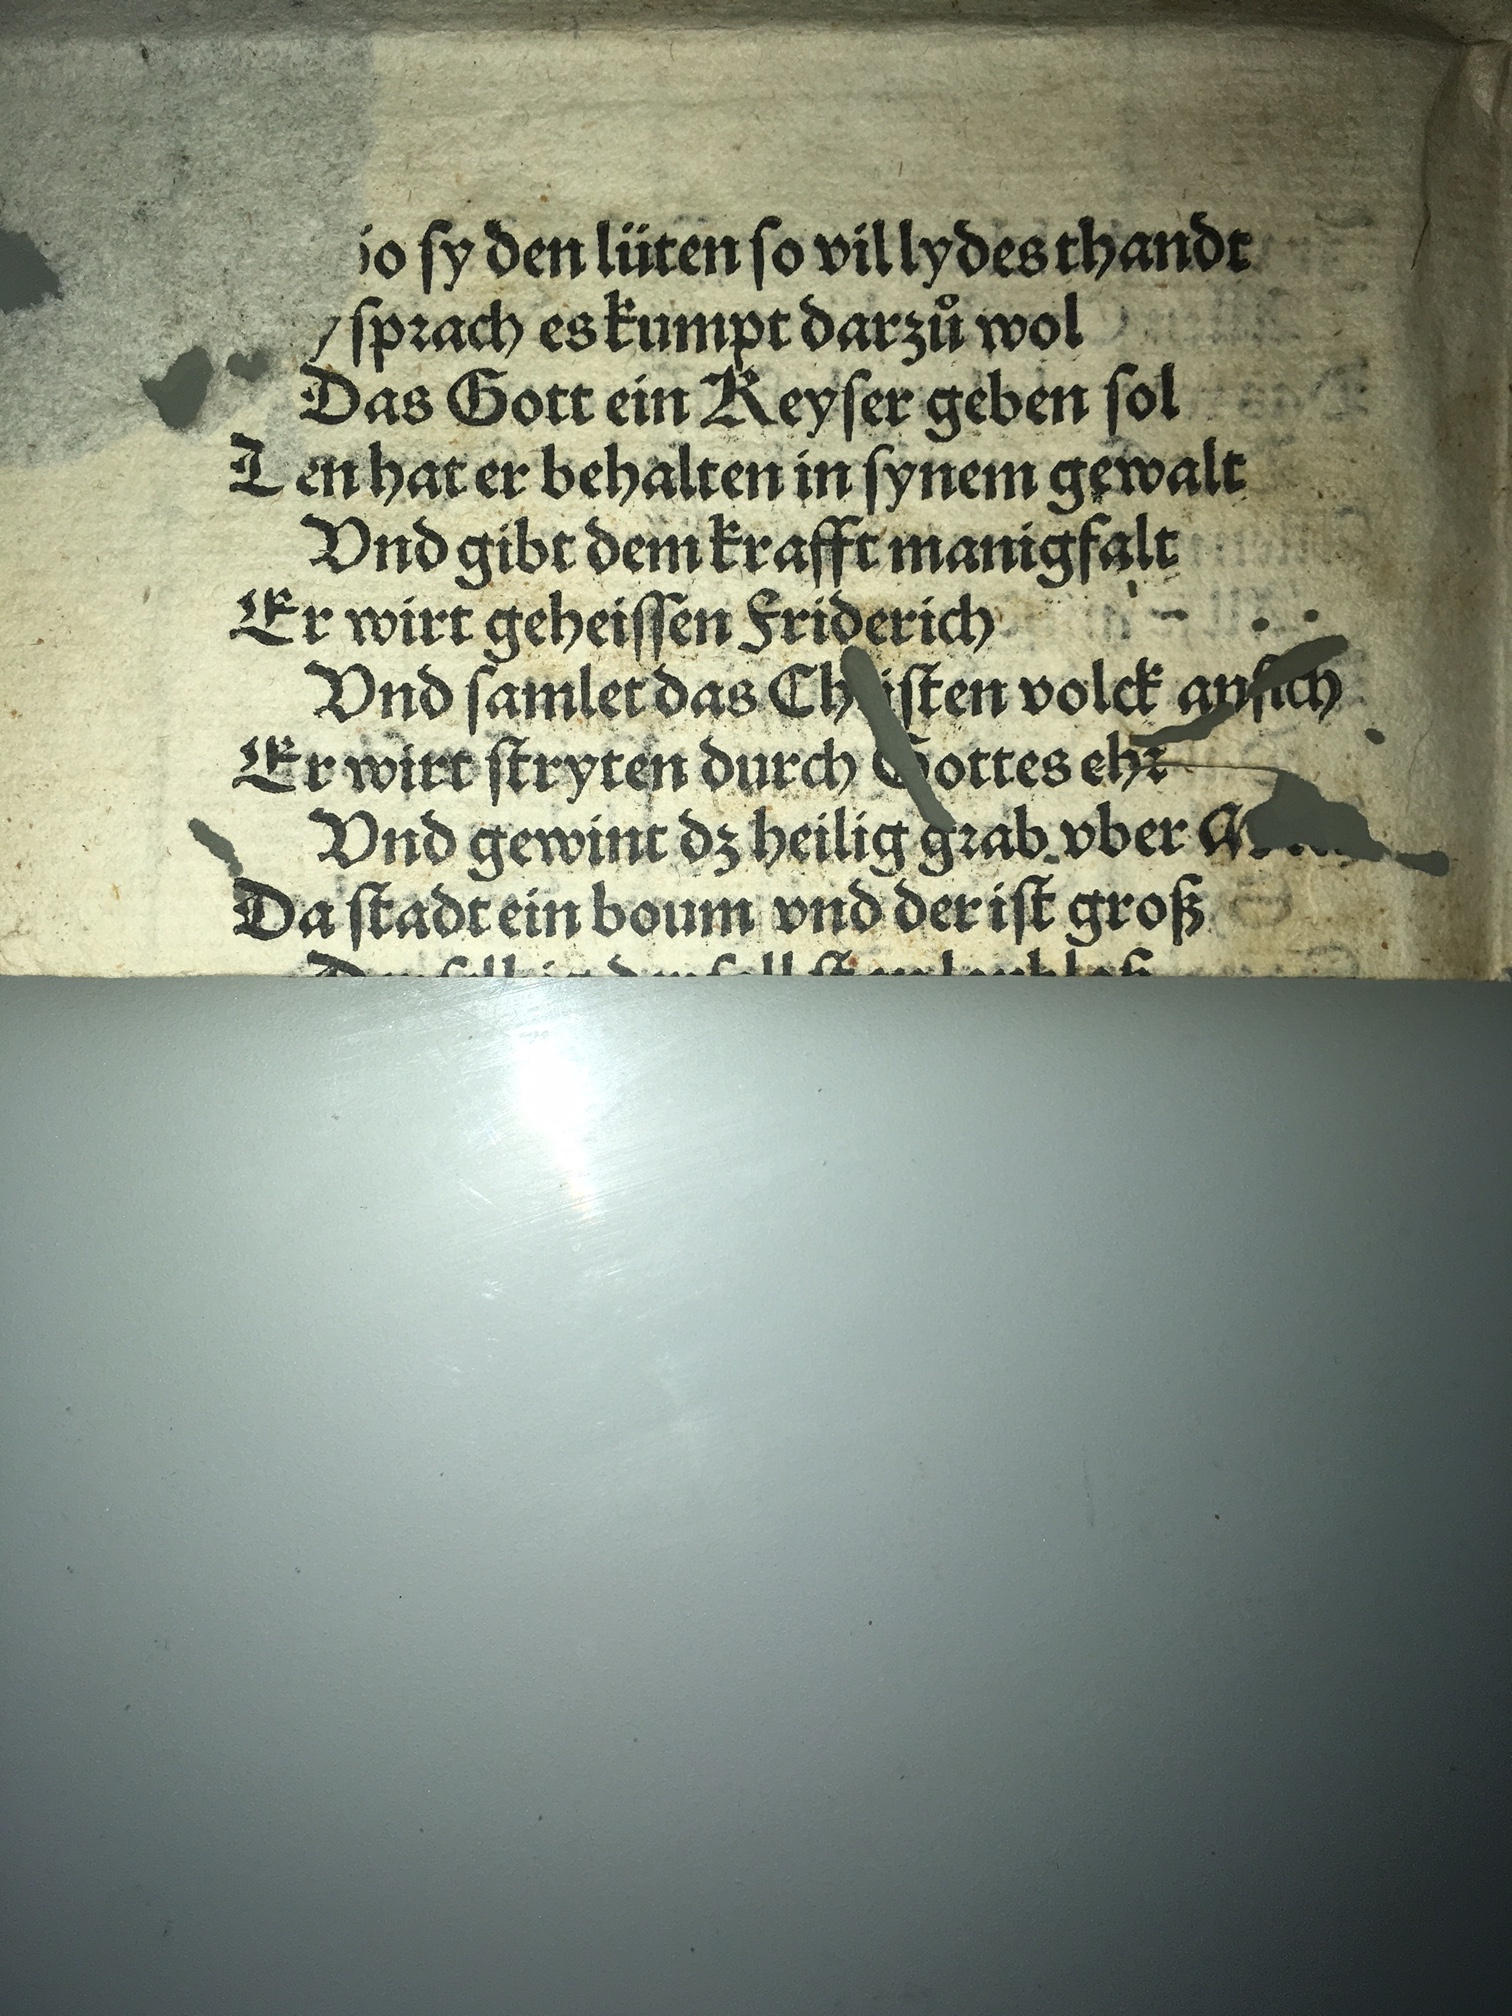 so sy den lüten so vil lydes thandt
sprach es kumpt darzuͦ wol
Das Gott ein Keyser geben sol
Den hat er behalten in synem gewalt
Vnd gibt dem krafft manigfalt
Er wirt geheissen Friderich
Vnd samlet das Christen volck an sich
Er wirt stryten durch Gottes ehr
Vnd gewint dz heilig grab vber
Da stadt ein boum vnd der ist groß